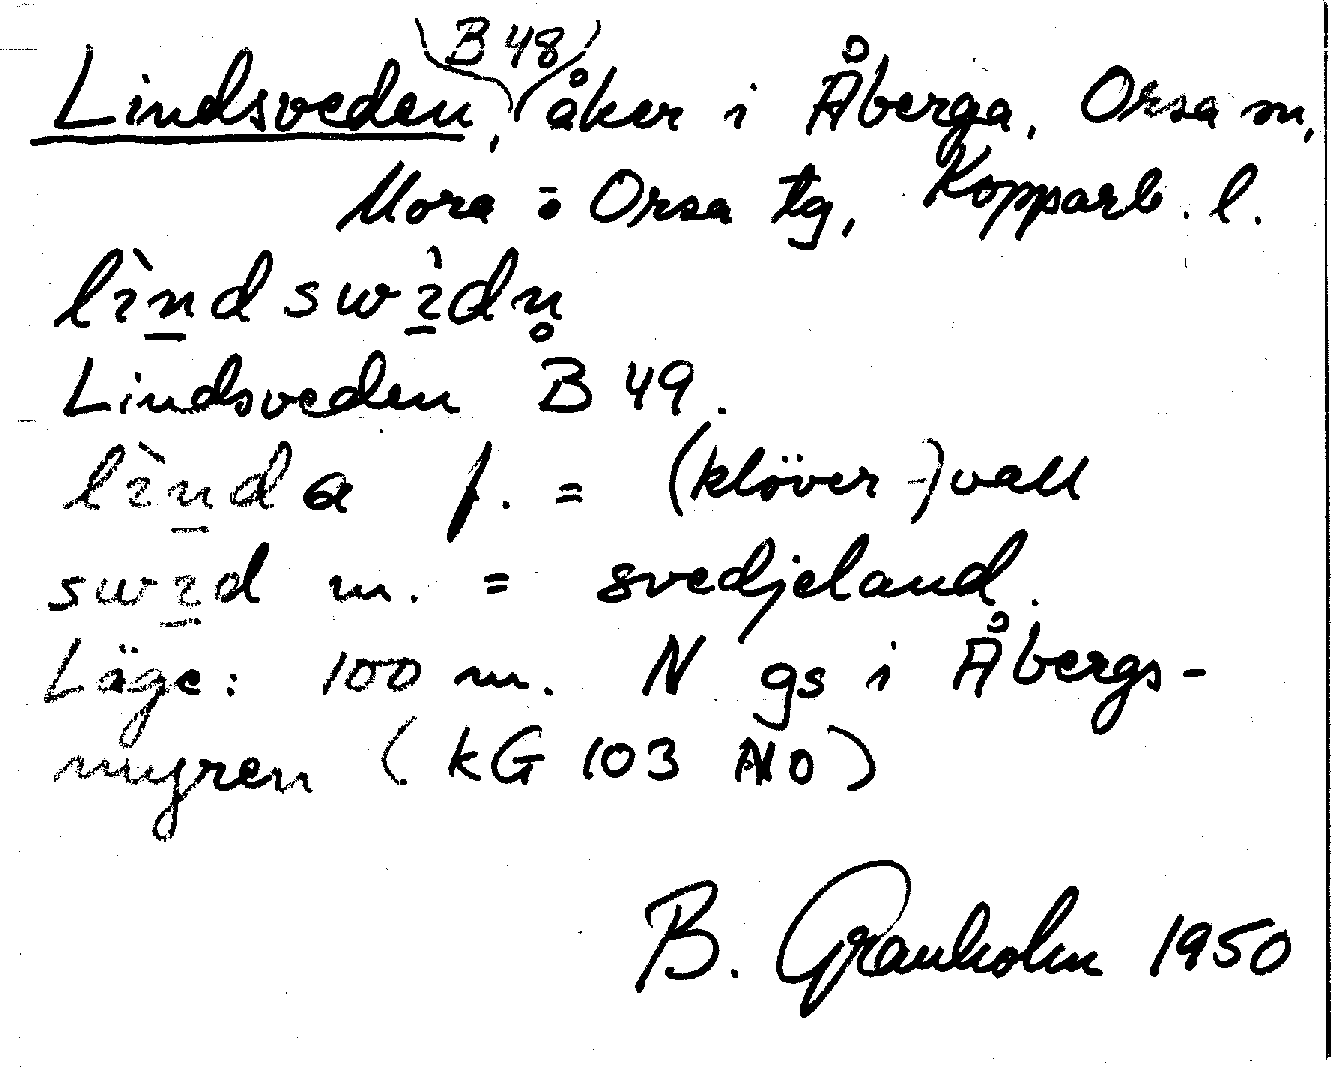 Lindsveden, (B 48) åker i Åberga, Orsa sn,
Mora o Orsa tg, Kopparb. l.
lìndswìdn̥
Lindsveden B 49.
lìnda f. = (klöver-)vall
swid m. = svedjeland.
Läge: 100 m. N gs i Åbergs-
myren (kG 103 NO)
B. Granholm 1950